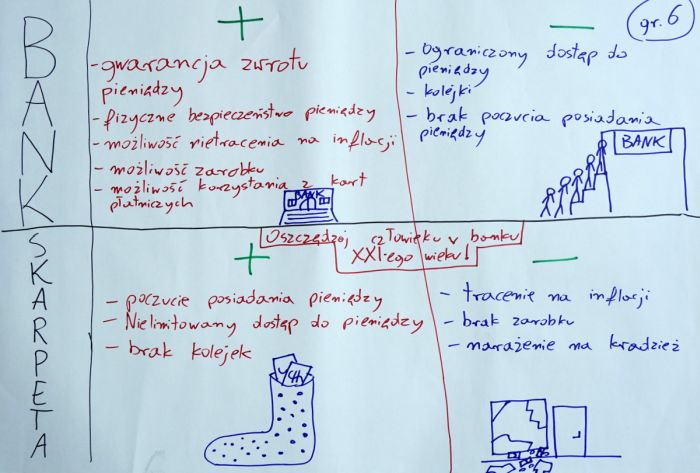 gr. 6
BANK
+
- gwarancja zwrotu
pieniędzy
- fizyczne bezpieczeństwo pieniędzy
- możliwość nietracenia na inflacji
- możliwość zarobku
- możliwość korzystania z kart
płatniczych
BANK
—
- Ograniczony dostęp do
pieniędzy
- kolejki
- brak poczucia posiadania
pieniędzy
BANK
Oszczędzaj człowieku w banku
XXI-ego wieku!
SKARPETA
+
- poczucie posiadania pieniędzy
- Nielimitowany dostęp do pieniędzy
- brak kolejek
—
- tracenie na inflacji
- brak zarobku
- narażenie na kradzież